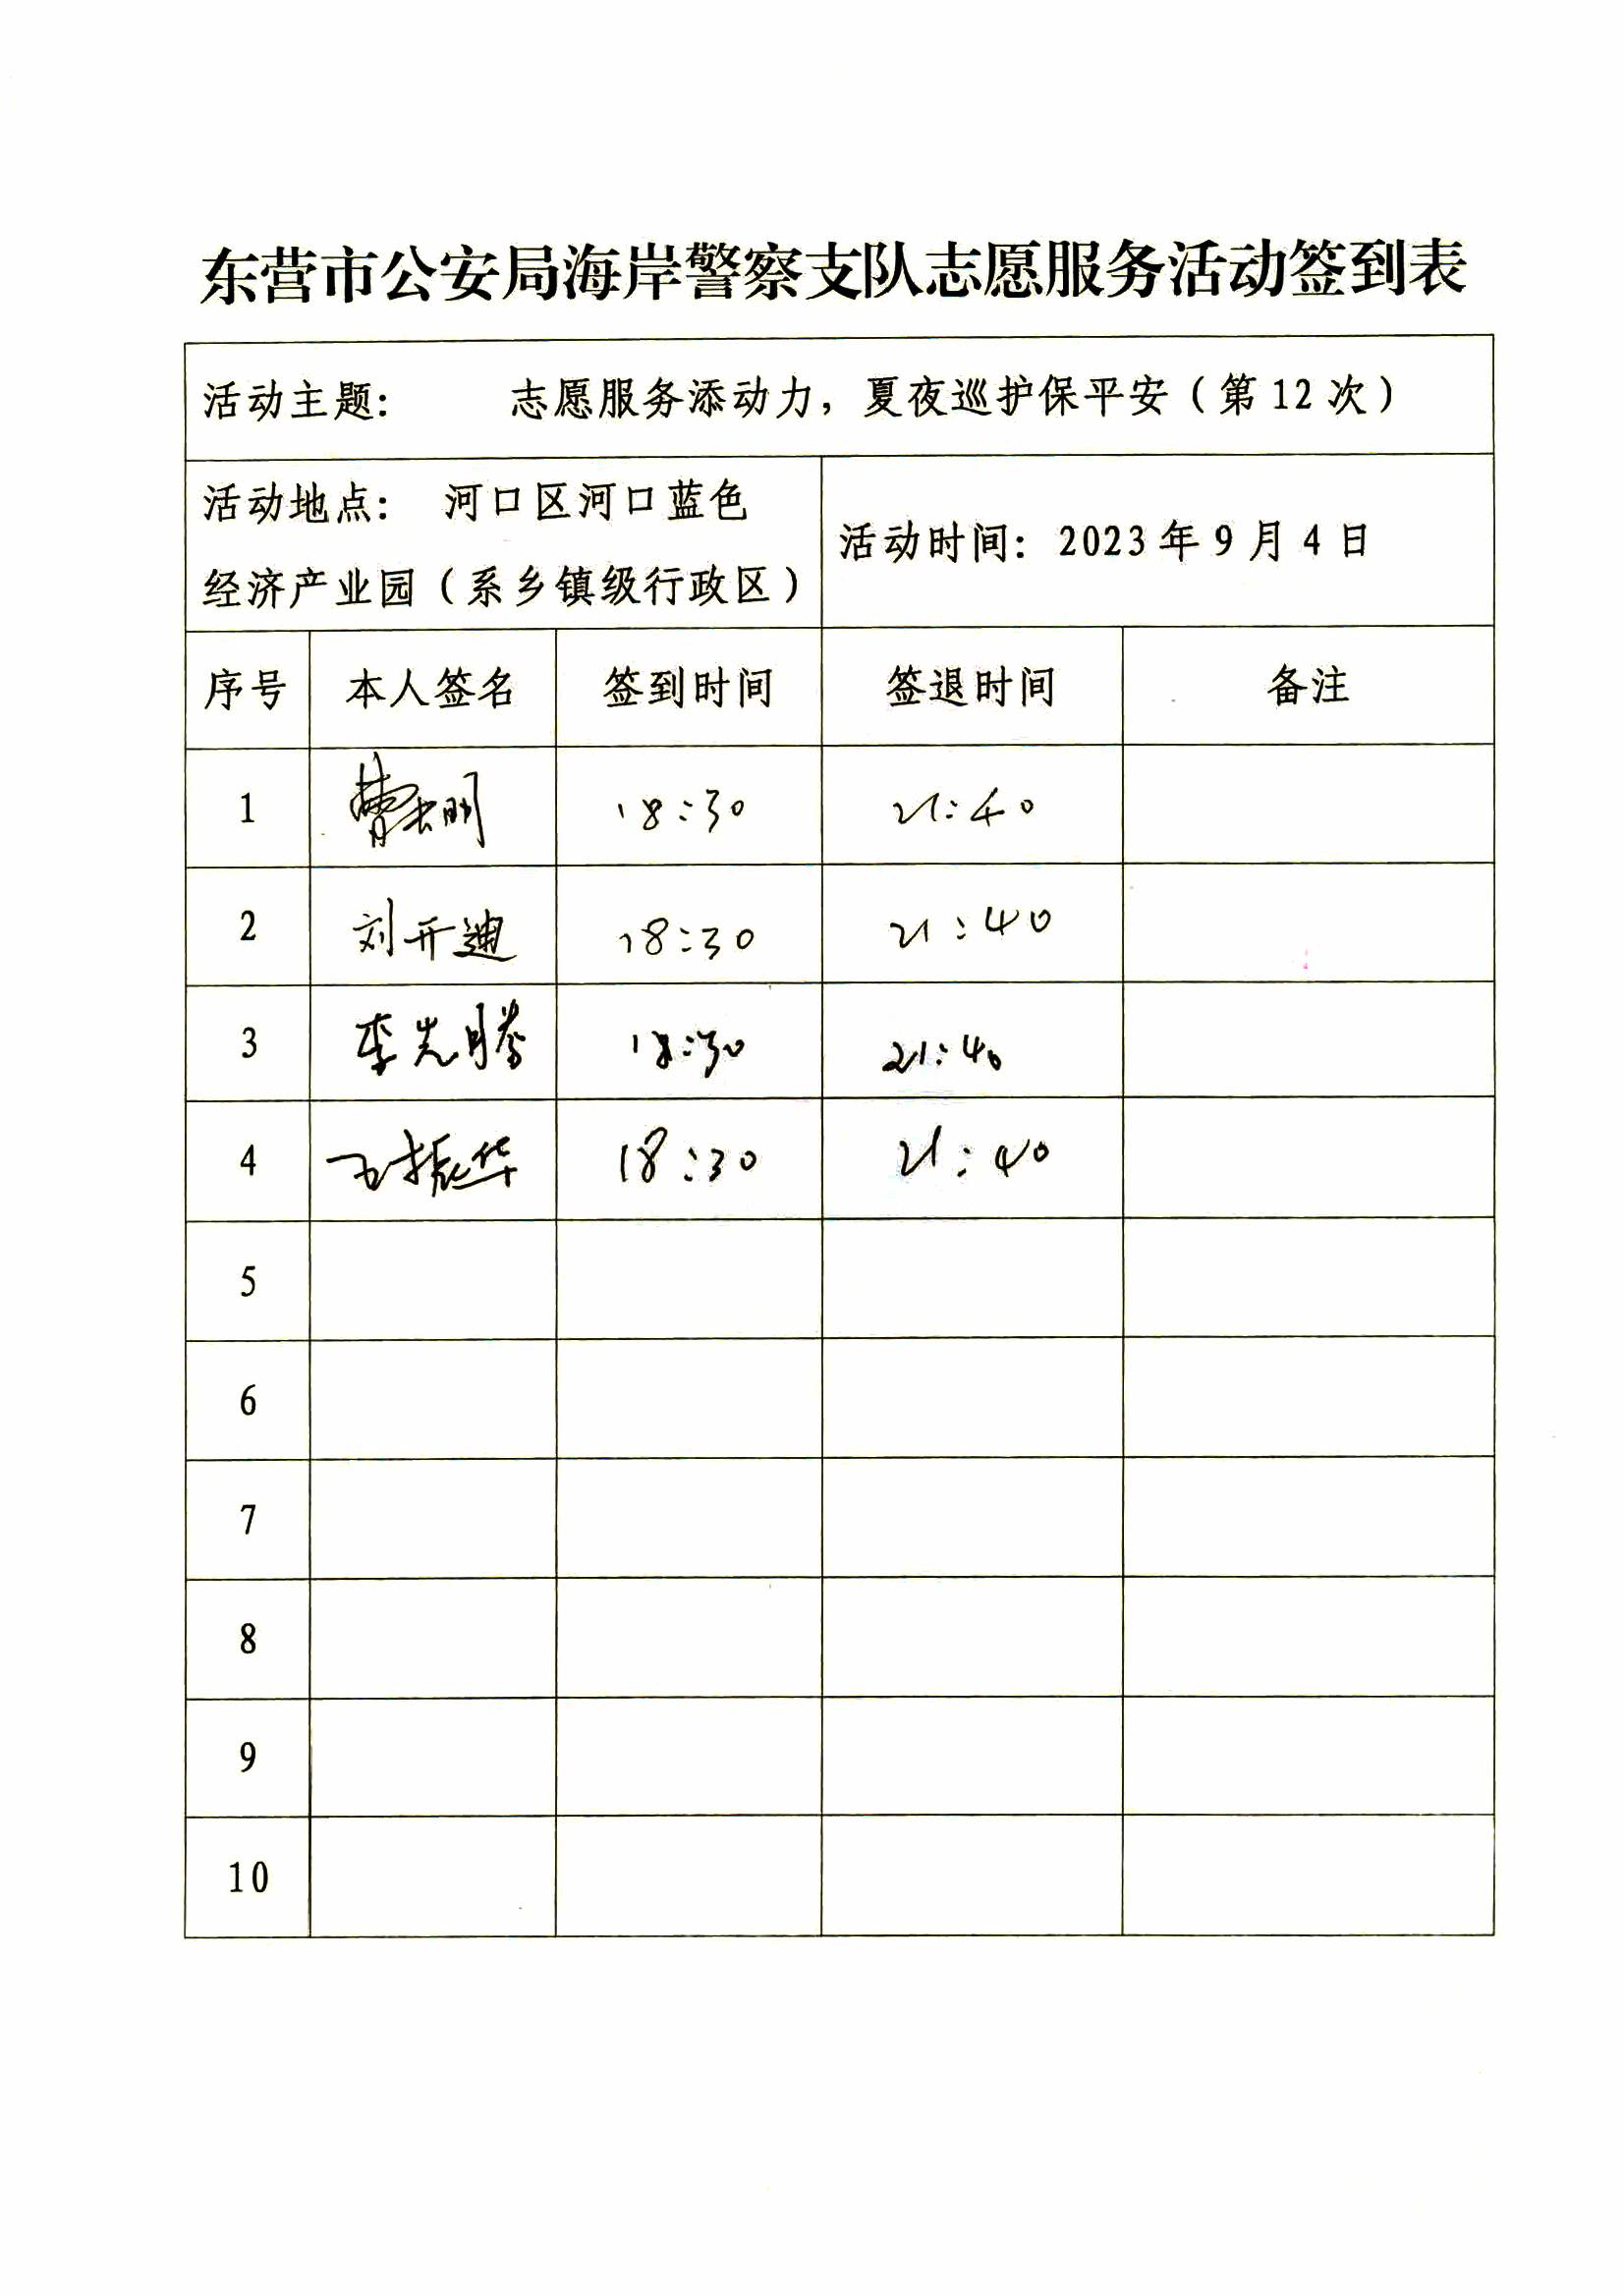 东营市公安局海岸警察支队志愿服务活动签到表
活动主题: 志愿服务添动力，夏夜巡护保平安（第12次）
活动地点: 河口区河口蓝色
经济产业园（系乡镇级行政区）
活动时间: 2023年9月4日
序号 本人签名 签到时间 签退时间 备注
1 曹 明 18:30 21:40
2 刘开迪 18:30 21:40
3 李先腾 18:30 21:40
4 振华 18:30 21:40
5
6
7
8
9
10